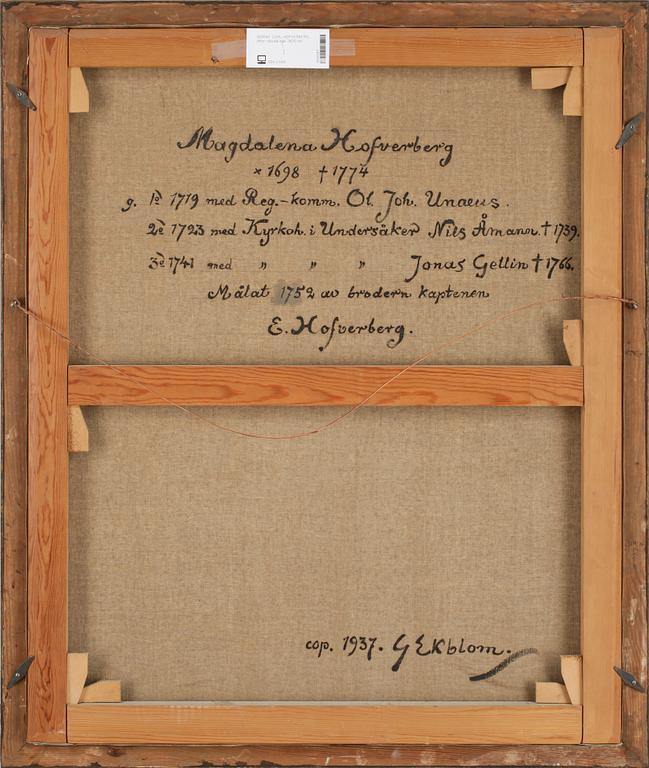 Magdalena Hofverberg
* 1698 † 1774
g. 1e 1719 med Reg.-komm. Ol. Joh. Unaeus.
2e 1723 med Kyrkoh. i Undersåker Nils Åmann. † 1739.
3e 1741 med " " " Jonas Gellin † 1766.
Målat 1752 av brodern kaptenen
E. Hofverberg.
cop. 1937. G Ekblom.